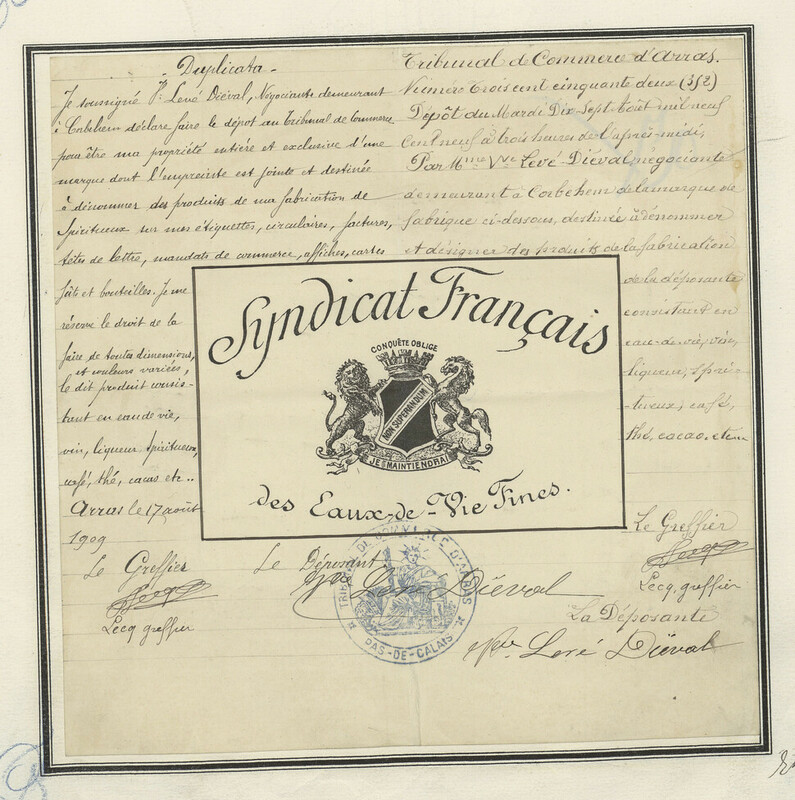 Duplicata
Je soussigné Vve Levé Diéval, Négociante demeurant
à Corbehem déclare faire le dépot au Tribunal de Commerce
pour être ma propriété entière et exclusive d'une
marque dont l'empreinte est jointe et destinée
à dénommer des produits de ma fabrication de
Spiritueux sur mes étiquettes, circulaires, factures,
têtes de lettre, mandats de commerce, affiches, cartes
fûts et bouteilles. Je me
réserve le droit de la
faire de toutes dimensions,
et couleurs variées,
le dit produit consis-
tant en eau de vie,
vin, liqueur spiritueux,
café, thé, cacao etc..
Arras le 17 août
1909
Le Greffier
Lecq greffier
Le Déposant
Vve Levé Diéval
Tribunal de Commerce d'Arras.
Numéro Trois cent cinquante deux (352)
Dépôt du Mardi Dix-Sept Août mil neuf
cent neuf à trois heures de l'après-midi,
Par Mme Vve Levé-Diéval négociante
demeurant à Corbehem de la marque de
fabrique ci-dessous, destinée à dénommer
et désigner des produits de la fabrication
de la déposante
consistant en
eau-de-vie, vin,
liqueur, spiri-
-tueux, café,
thé, cacao, etc
Le Greffier
Lecq, greffier
La Déposante
Vve Levé Diéval
Syndicat Français
CONQUÊTE OBLIGE
NON SUPERANDUM
JE MAINTIENDRAI
des Eaux-de-Vie Fines.
TRIBUNAL DE COMMERCE D'ARRAS
PAS-DE-CALAIS